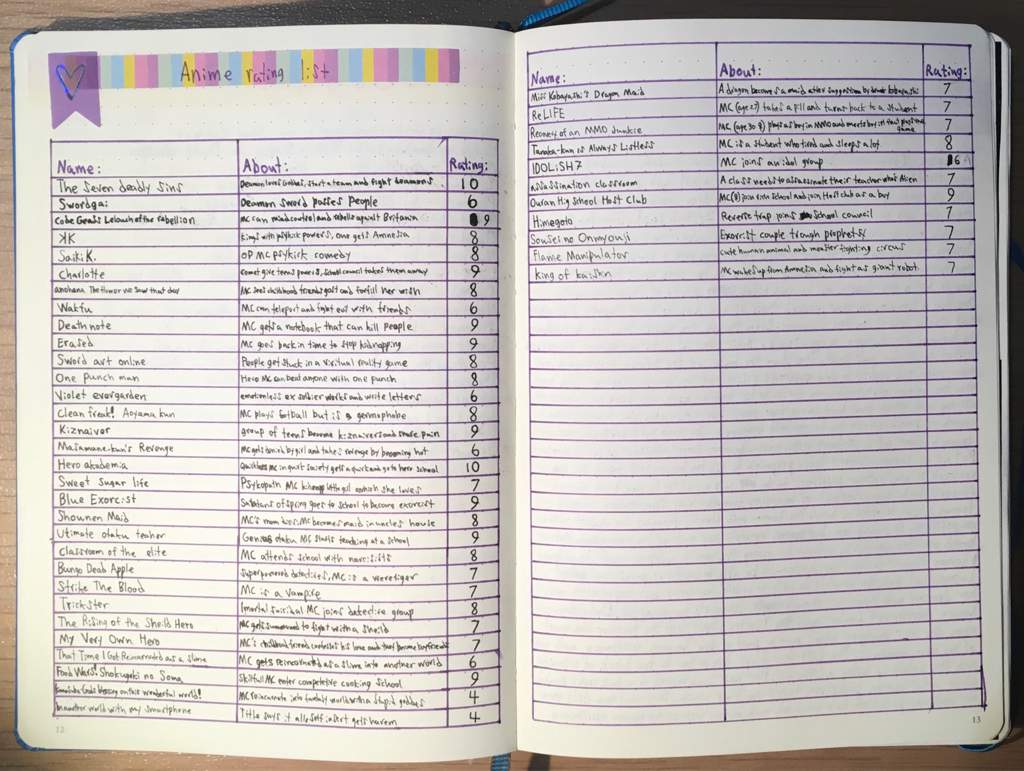 Anime rating list
Name: About: Rating:
The Seven deadly sins Deamon loves Goddes, start a team and fight deamons 10
Swordgai Deamon sword posses People 6
Code Geass Lelouch of the rebellion MC can mind control and rebells against Britania 9
K Kings with psykick powers, one gets Amnesia 8
Saiki K. OP MC psykick comedy 8
Charlotte comet give teens powers, school council takes them away 9
anohana The flower we saw that day MC sees childhood friends gost and forfill her wish 8
Wakfu MC can teleport and fight evil with friends 6
Death note MC gets a notebook that can kill people 9
Erased MC goes back in time to stop kidnapping 9
Sword art online People get stuck in a virtual reality game 8
One Punch man Hero MC can beat anyone with one punch 8
Violet evergarden emotionless ex soldier works and write letters 6
Clean freak! Aoyama kun MC plays fotball but is a germophobe 8
Kiznaiver group of teens become kiznaivers and share pain 9
Masamune-kun's Revenge MC gets by girl and takes revenge by becoming hot 6
Hero akademia Quirkless MC in quirk society gets a quirk and go to hero school 10
Sweet Sugar life Psykopath MC little girl which she loves 7
Blue Exorcist Satans of spring goes to school to become exorcist 9
Shounen Maid MC's mom dies. MC becomes maid in uncles house 8
Utimate otaku teaher Genius otaku MC starts teaching at a school 9
Classroom of the elite MC attends school with narcisists 8
Bungo Dead Apple Superpowered detectives, MC is a weretiger 7
Strike The Blood MC is a Vampire 7
Trickster Imortal suisidal MC joins detective group 8
The Rising of the Sheild Hero MC gets summoned to fight with a sheild 7
My Very Own Hero MC's childhood friend confesses his love and they become boyfriends 7
That Time I Got Reincarnated as a slime MC gets reincarnated as a slime into another world 6
Food Wars! Shokugeki no Soma Skillfull MC enter competetive cooking school 9
God's blessing on this wonderful world! MC reincarnate into fantasy world with a stupid goddes 4
In another world with my smartphone Title says it all self insert gets harem 4
12
Name: About: Rating:
Miss Kobayashi's Dragon Maid A dragon become a maid after suggestion by Kobayashi 7
ReLIFE MC (age 27) takes a pill and turns back to a student 7
Recovey of an MMO Junkie MC (age 30 ♀) plays as boy in MMO and meets boy in that plays game 7
Tanaka-kun is Always Listless MC is a student who tired and sleeps a lot 8
IDOLiSH7 MC joins an idol group 6
assassination classroom A class needs to assassinate their teacher whos Alien 7
Ouran Hig school Host Club MC(♀) join rich school and join Host club as a boy 9
Himegoto Reverse trap joins school council 7
Sousei no Onmyouji Exorcist couple trough prophetsy 7
Flame Manipulator cute human animal and monster fighting circus 7
King of MC wakes up from Amnesia and fight as giant robot. 7
13